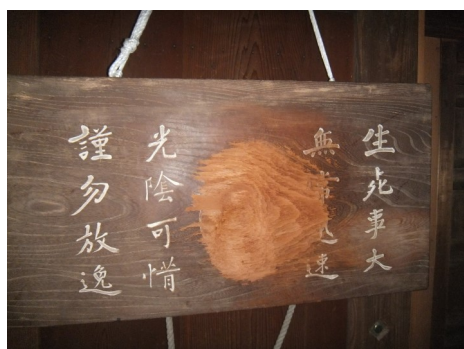 生死事大
無常迅速
光陰可惜
謹勿放逸